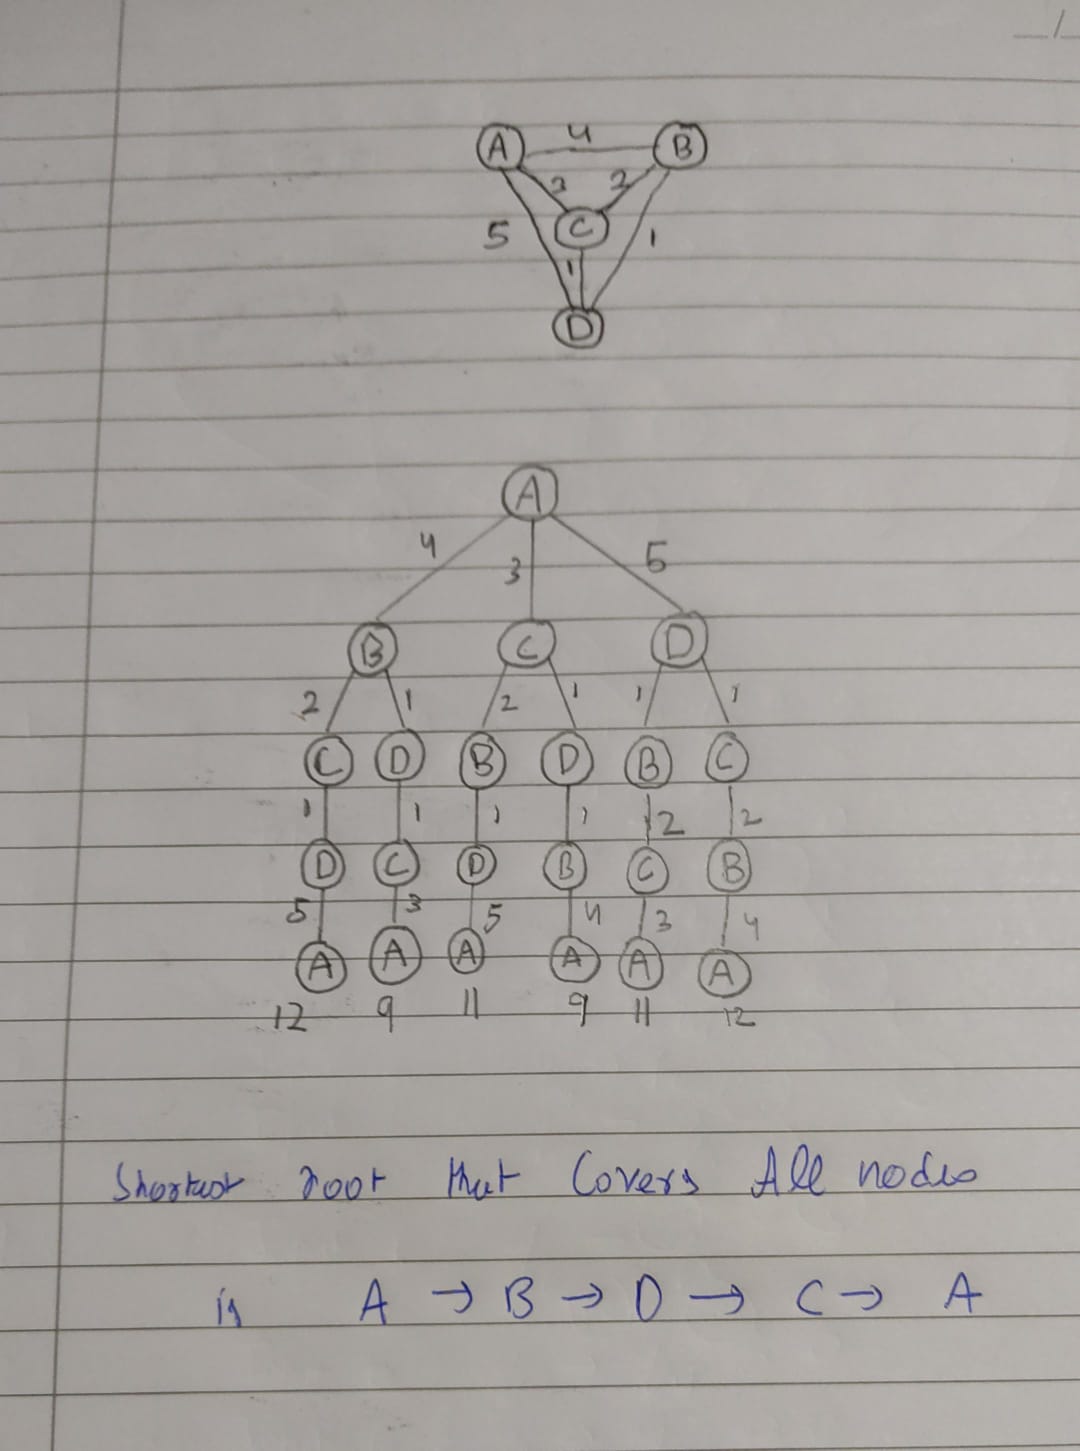 A 4 B
3 2
5 C 1
1
D
A
4 3 5
B C D
2 1 2 1 1 1
C D B D B C
1 1 1 1 2 2
D C D B C B
5 3 5 4 3 4
A A A A A A
12 9 11 9 11 12
Shortest root that Covers All nodes
is A → B → D → C → A